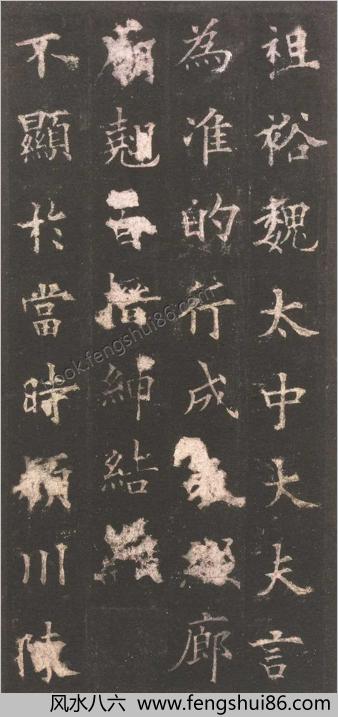 祖裕魏太中大夫言
為准的行成廊
廟紳結
不顯於當時川陳
book.fengshui86.com
风水八六 www.fengshui86.com